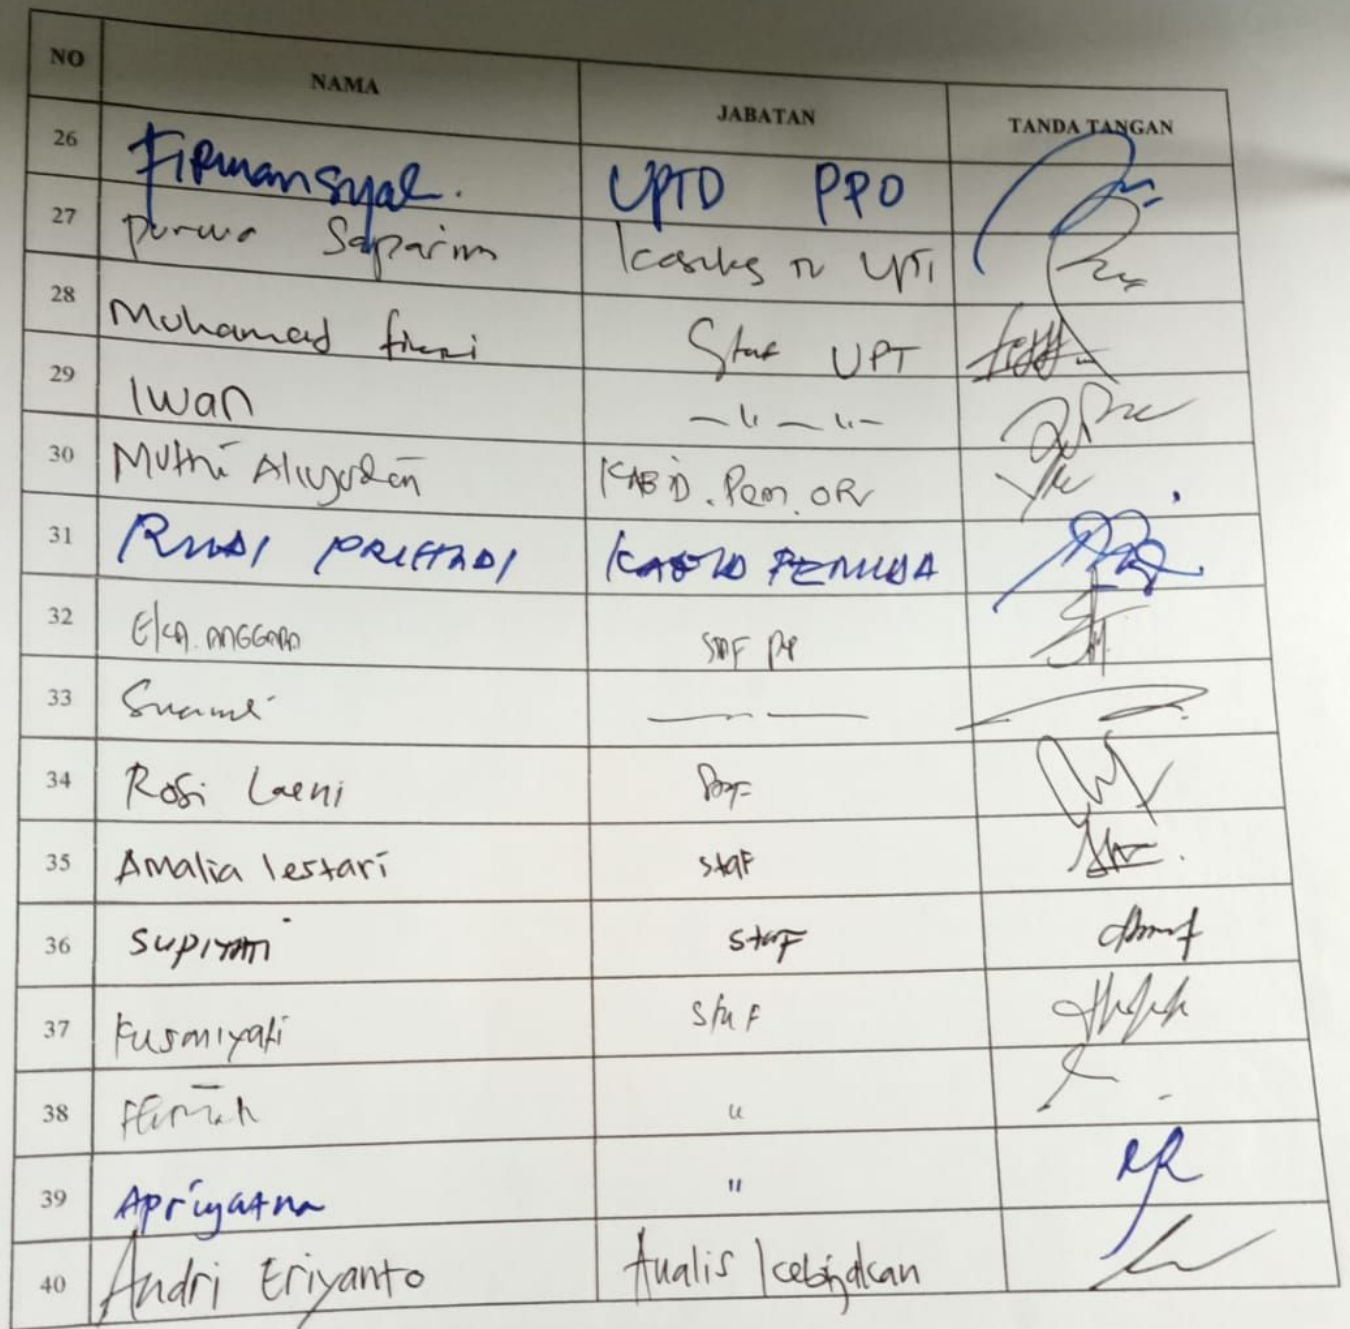 NO NAMA JABATAN TANDA TANGAN
26 Firmansyah. UPTD PPO
27 Purwa Saparin Kasubag TU UPT
28 Mohamad fikri Staf UPT
29 Iwan — " — " —
30 KABID. Pem. OR
31 RUDI PRIHADI KABID PEMUDA
32 EKA. ANGGARA STAF PP
33 — " —
34 Rosi Laeni Staf
35 Amalia lestari staf
36 Supiyati staf
37 Kusmiyati staf
38 "
39 Apriyatna "
40 Andri Eriyanto Analis Kebijakan